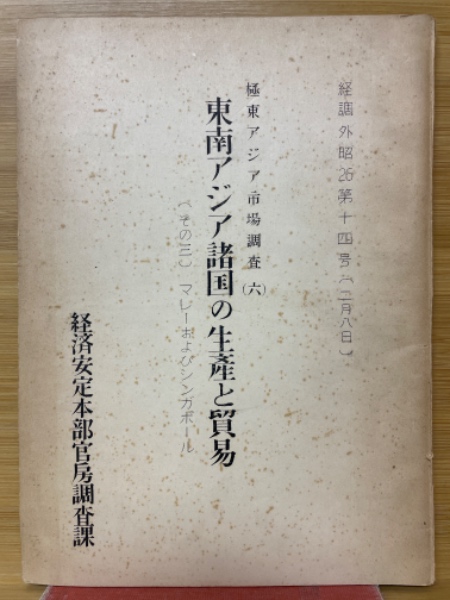 経調外昭26第十四号(二月八日)
極東アジア市場調査(六)
東南アジア諸国の生産と貿易
(その三) マレーおよびシンガポール
経済安定本部官房調査課